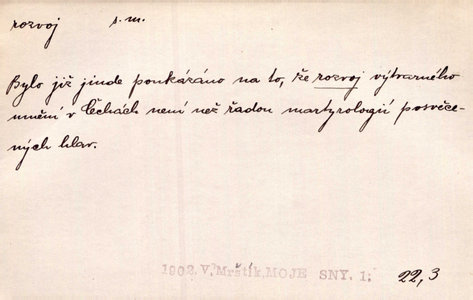 rozvoj s.m.
Bylo již jinde poukázáno na to, že rozvoj výtvarného
umění v Čechách není než řadou martyrologií posvěce-
ných hlav.
1902. V. Mrštík, MOJE SNY. 1: 22,3